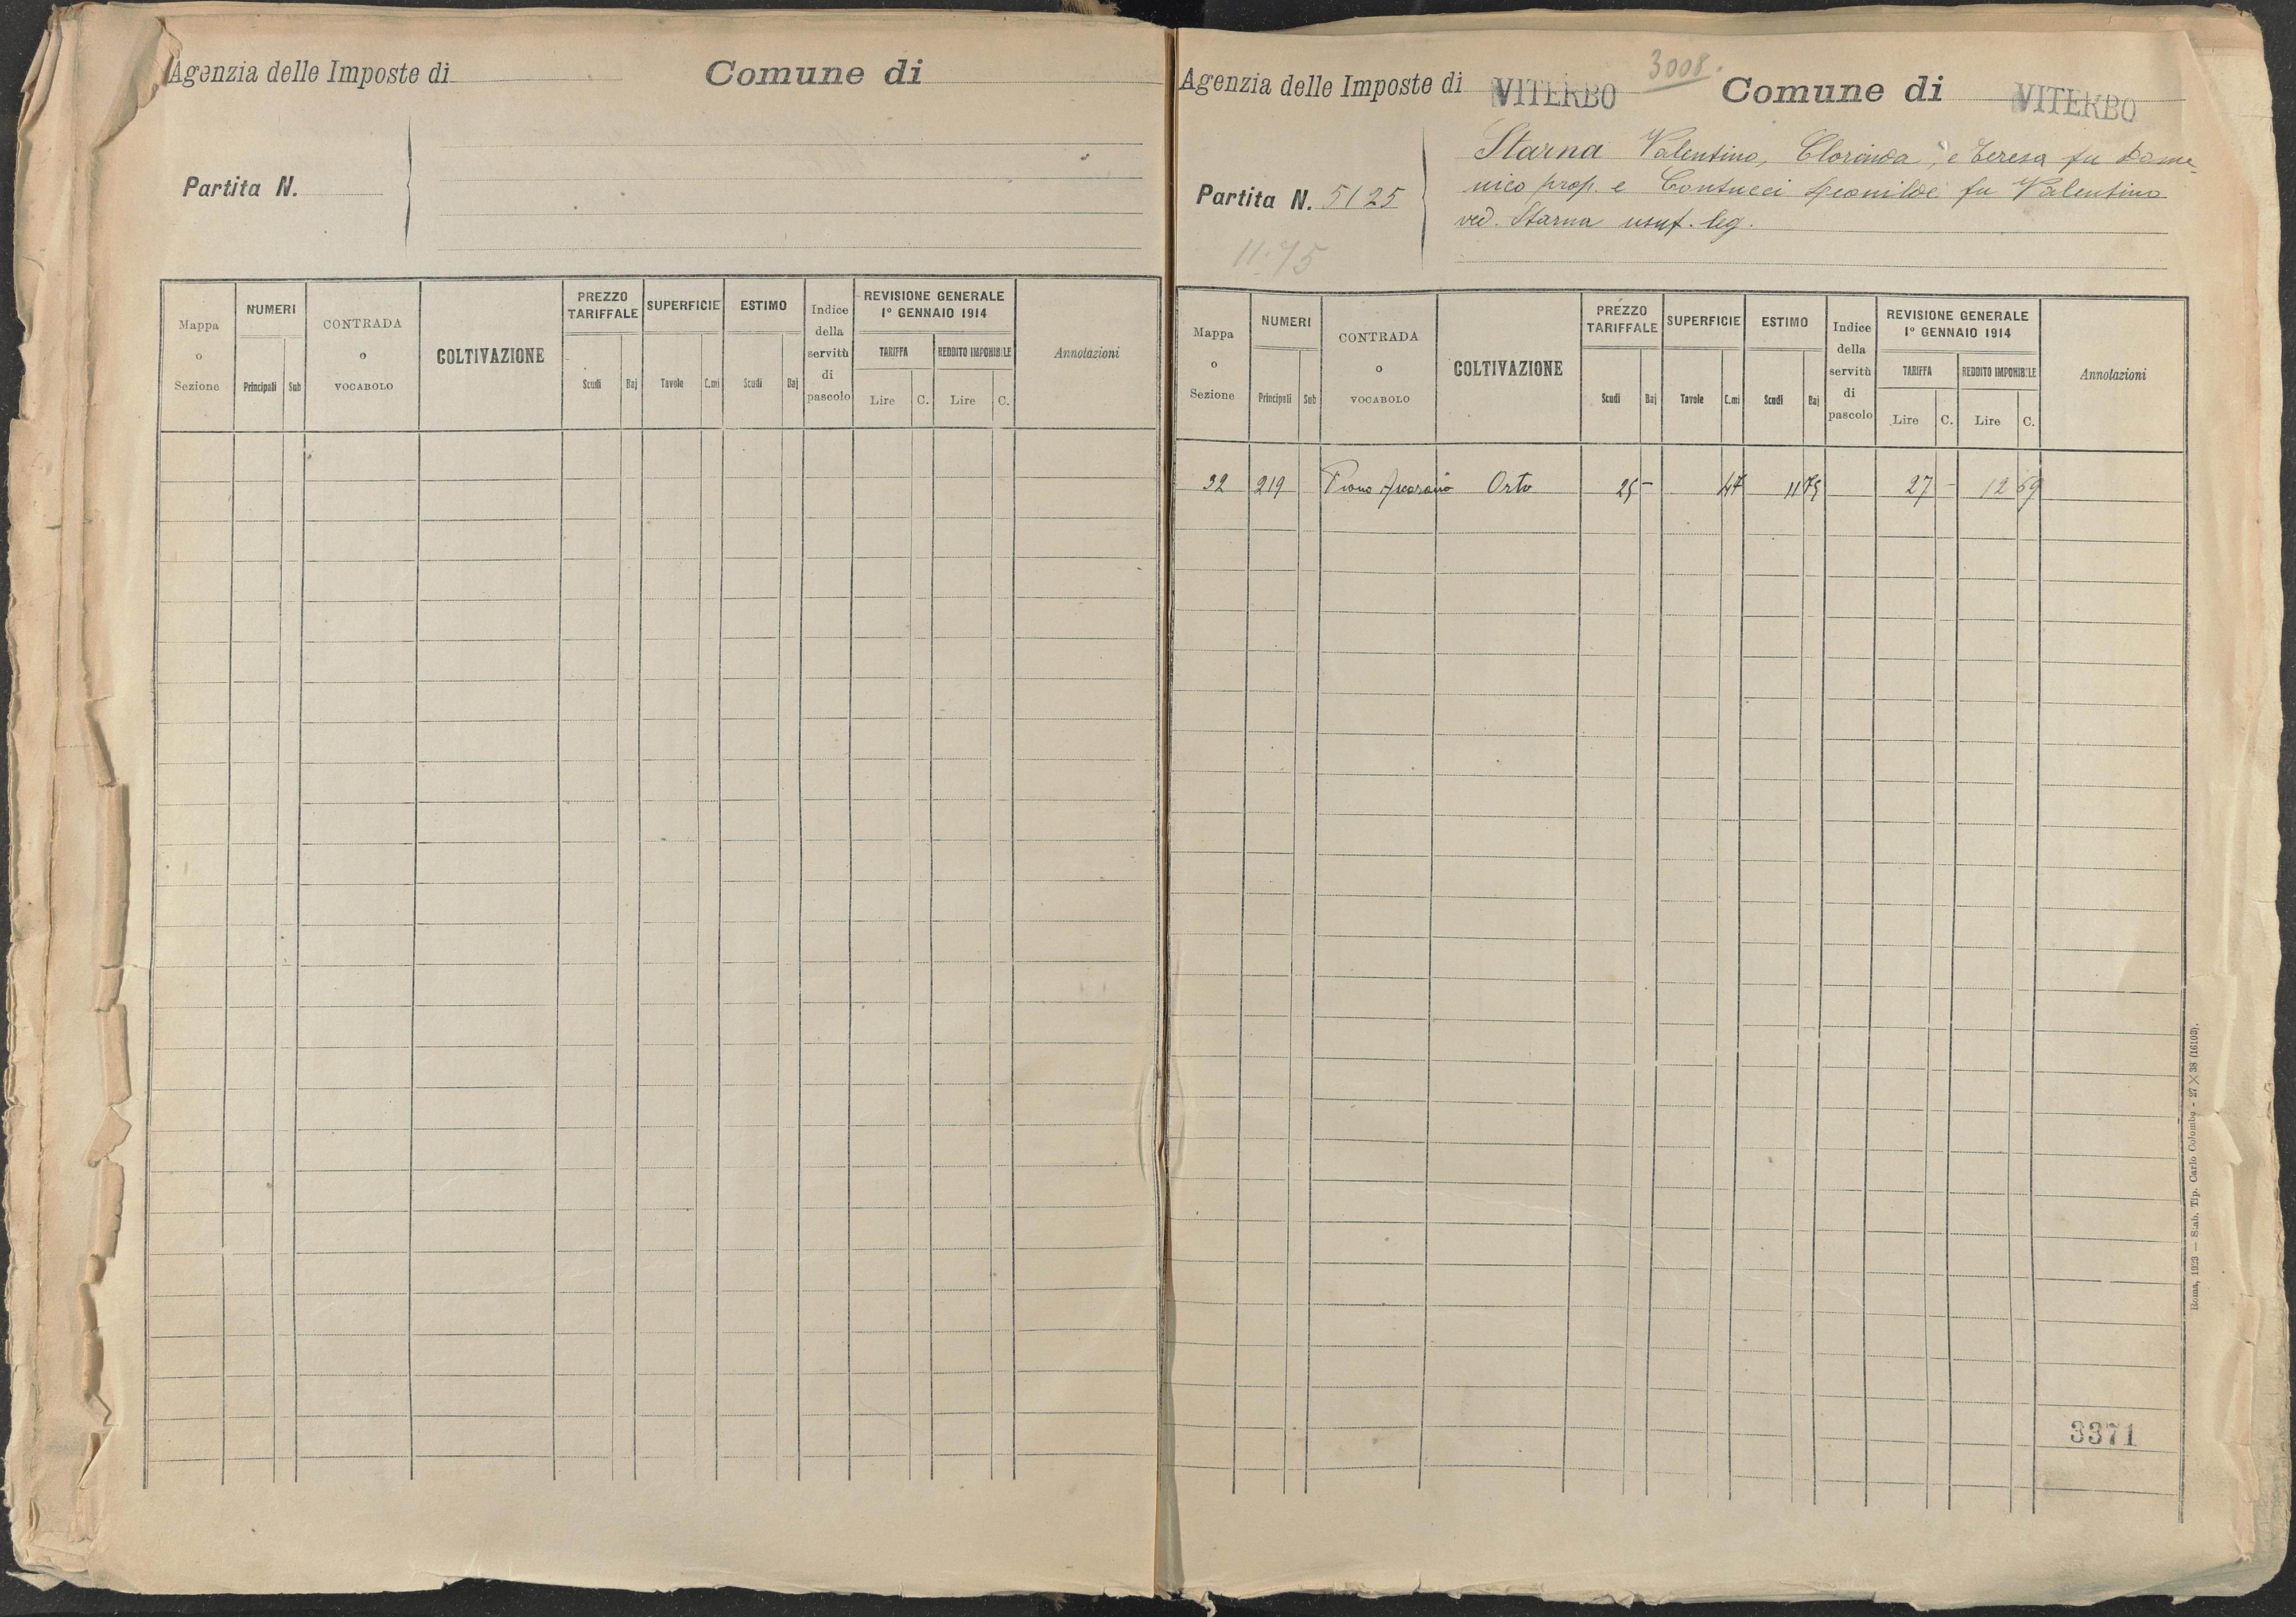 Agenzia delle Imposte di Comune di
Partita N.
Mappa o Sezione NUMERI Principali Sub CONTRADA o VOCABOLO COLTIVAZIONE PREZZO TARIFFALE Scudi Baj SUPERFICIE Tavole C.mi ESTIMO Scudi Baj Indice della servitù di pascolo REVISIONE GENERALE 1° GENNAIO 1914 TARIFFA Lire C. REDDITO IMPONIBILE Lire C. Annotazioni
3008.
Agenzia delle Imposte di VITERBO Comune di VITERBO
Starna Valentino, Clorinda, e Teresa fu Dome
Partita N. 5125
nico prop. e Contucci Leonilde fu Valentino
ved. Starna usuf. leg.
11:75
Mappa o Sezione NUMERI Principali Sub CONTRADA o VOCABOLO COLTIVAZIONE PREZZO TARIFFALE Scudi Baj SUPERFICIE Tavole C.mi ESTIMO Scudi Baj Indice della servitù di pascolo REVISIONE GENERALE 1° GENNAIO 1914 TARIFFA Lire C. REDDITO IMPONIBILE Lire C. Annotazioni
32 219 Piano Ascarano Orto 25 - 47 11 75 27 - 12 69
Roma, 1923 — Stab. Tip. Carlo Colombo - 27 × 38 (16103).
3371